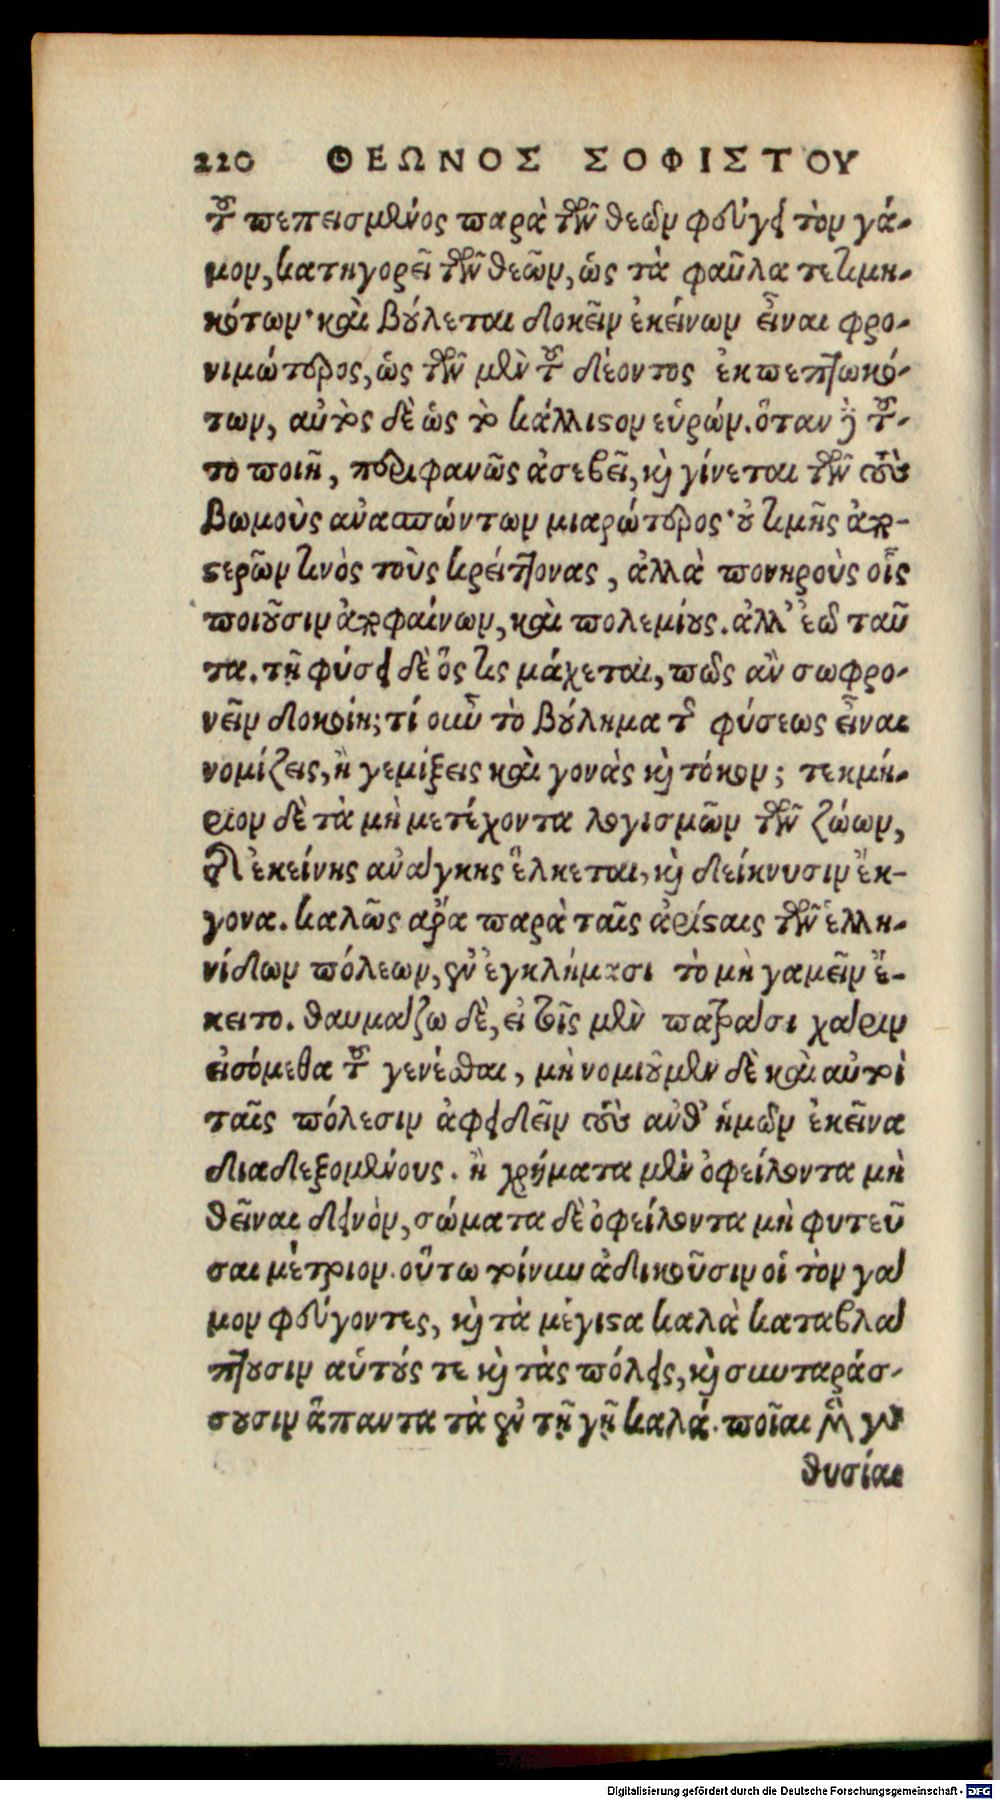 220 ΘΕΩΝΟΣ ΣΟΦΙΣΤΟΥ
τοῦ πεπεισμένος παρὰ τῶν θεῶν φεύγει τὸν γά-
μον, κατηγορεῖ τῶν θεῶν, ὡς τὰ φαῦλα τετιμη-
κότων· καὶ βούλεται δοκεῖν ἐκείνων εἶναι φρο-
νιμώτερος, ὡς τῶν μὲν τοῦ δέοντος ἐκπεπτωκό-
των, αὐτὸς δὲ ὡς τὸ κάλλιστον εὑρών. ὅταν δὲ τοῦ-
το ποιῇ, περιφανῶς ἀσεβεῖ, καὶ γίνεται τῶν τοὺς
βωμοὺς ἀνασπώντων μιαρώτερος· οὐ τιμῆς ἀπο-
στερῶν τινὸς τοὺς κρείττονας, ἀλλὰ πονηροὺς οἷς
ποιοῦσιν ἀποφαίνων, καὶ πολεμίους. ἀλλ' ἐῶ ταῦ
τα. τῇ φύσει δὲ ὅς τις μάχεται, πῶς ἂν σωφρο-
νεῖν δοκοίη; τί οὖν τὸ βούλημα τῆς φύσεως εἶναι
νομίζεις, ἢ γεμίξεις καὶ γονὰς καὶ τόκον; τεκμή-
ριον δὲ τὰ μὴ μετέχοντα λογισμῶν τῶν ζώων,
ὑπ' ἐκείνης ἀνάγκης ἕλκεται, καὶ δείκνυσιν ἔκ-
γονα. καλῶς ἄρα παρὰ ταῖς ἀρίσταις τῶν ἑλλη-
νίδων πόλεων, ἐν ἐγκλήμασι τὸ μὴ γαμεῖν ἔ-
κειτο. θαυμάζω δὲ, εἰ τοῖς μὲν πατράσι χάριν
εἰσόμεθα τοῦ γενέσθαι, μὴ νομιοῦμεν δὲ καὶ αὐτοὶ
ταῖς πόλεσιν ὀφείλειν τοὺς ἀνθ' ἡμῶν ἐκεῖνα
διαδεξομένους. ἢ χρήματα μὲν ὀφείλοντα μὴ
θεῖναι δεινὸν, σώματα δὲ ὀφείλοντα μὴ φυτεῦ
σαι μέτριον. οὕτω τοίνυν ἀδικοῦσιν οἱ τὸν γά
μον φεύγοντες, καὶ τὰ μέγιστα καλὰ καταβλά
πτουσιν αὑτούς τε καὶ τὰς πόλεις, καὶ συνταράσ-
σουσιν ἅπαντα τὰ ἐν τῇ γῇ καλά. ποῖαι μὲν γὰρ
θυσίαι
Digitalisierung gefördert durch die Deutsche Forschungsgemeinschaft - DFG